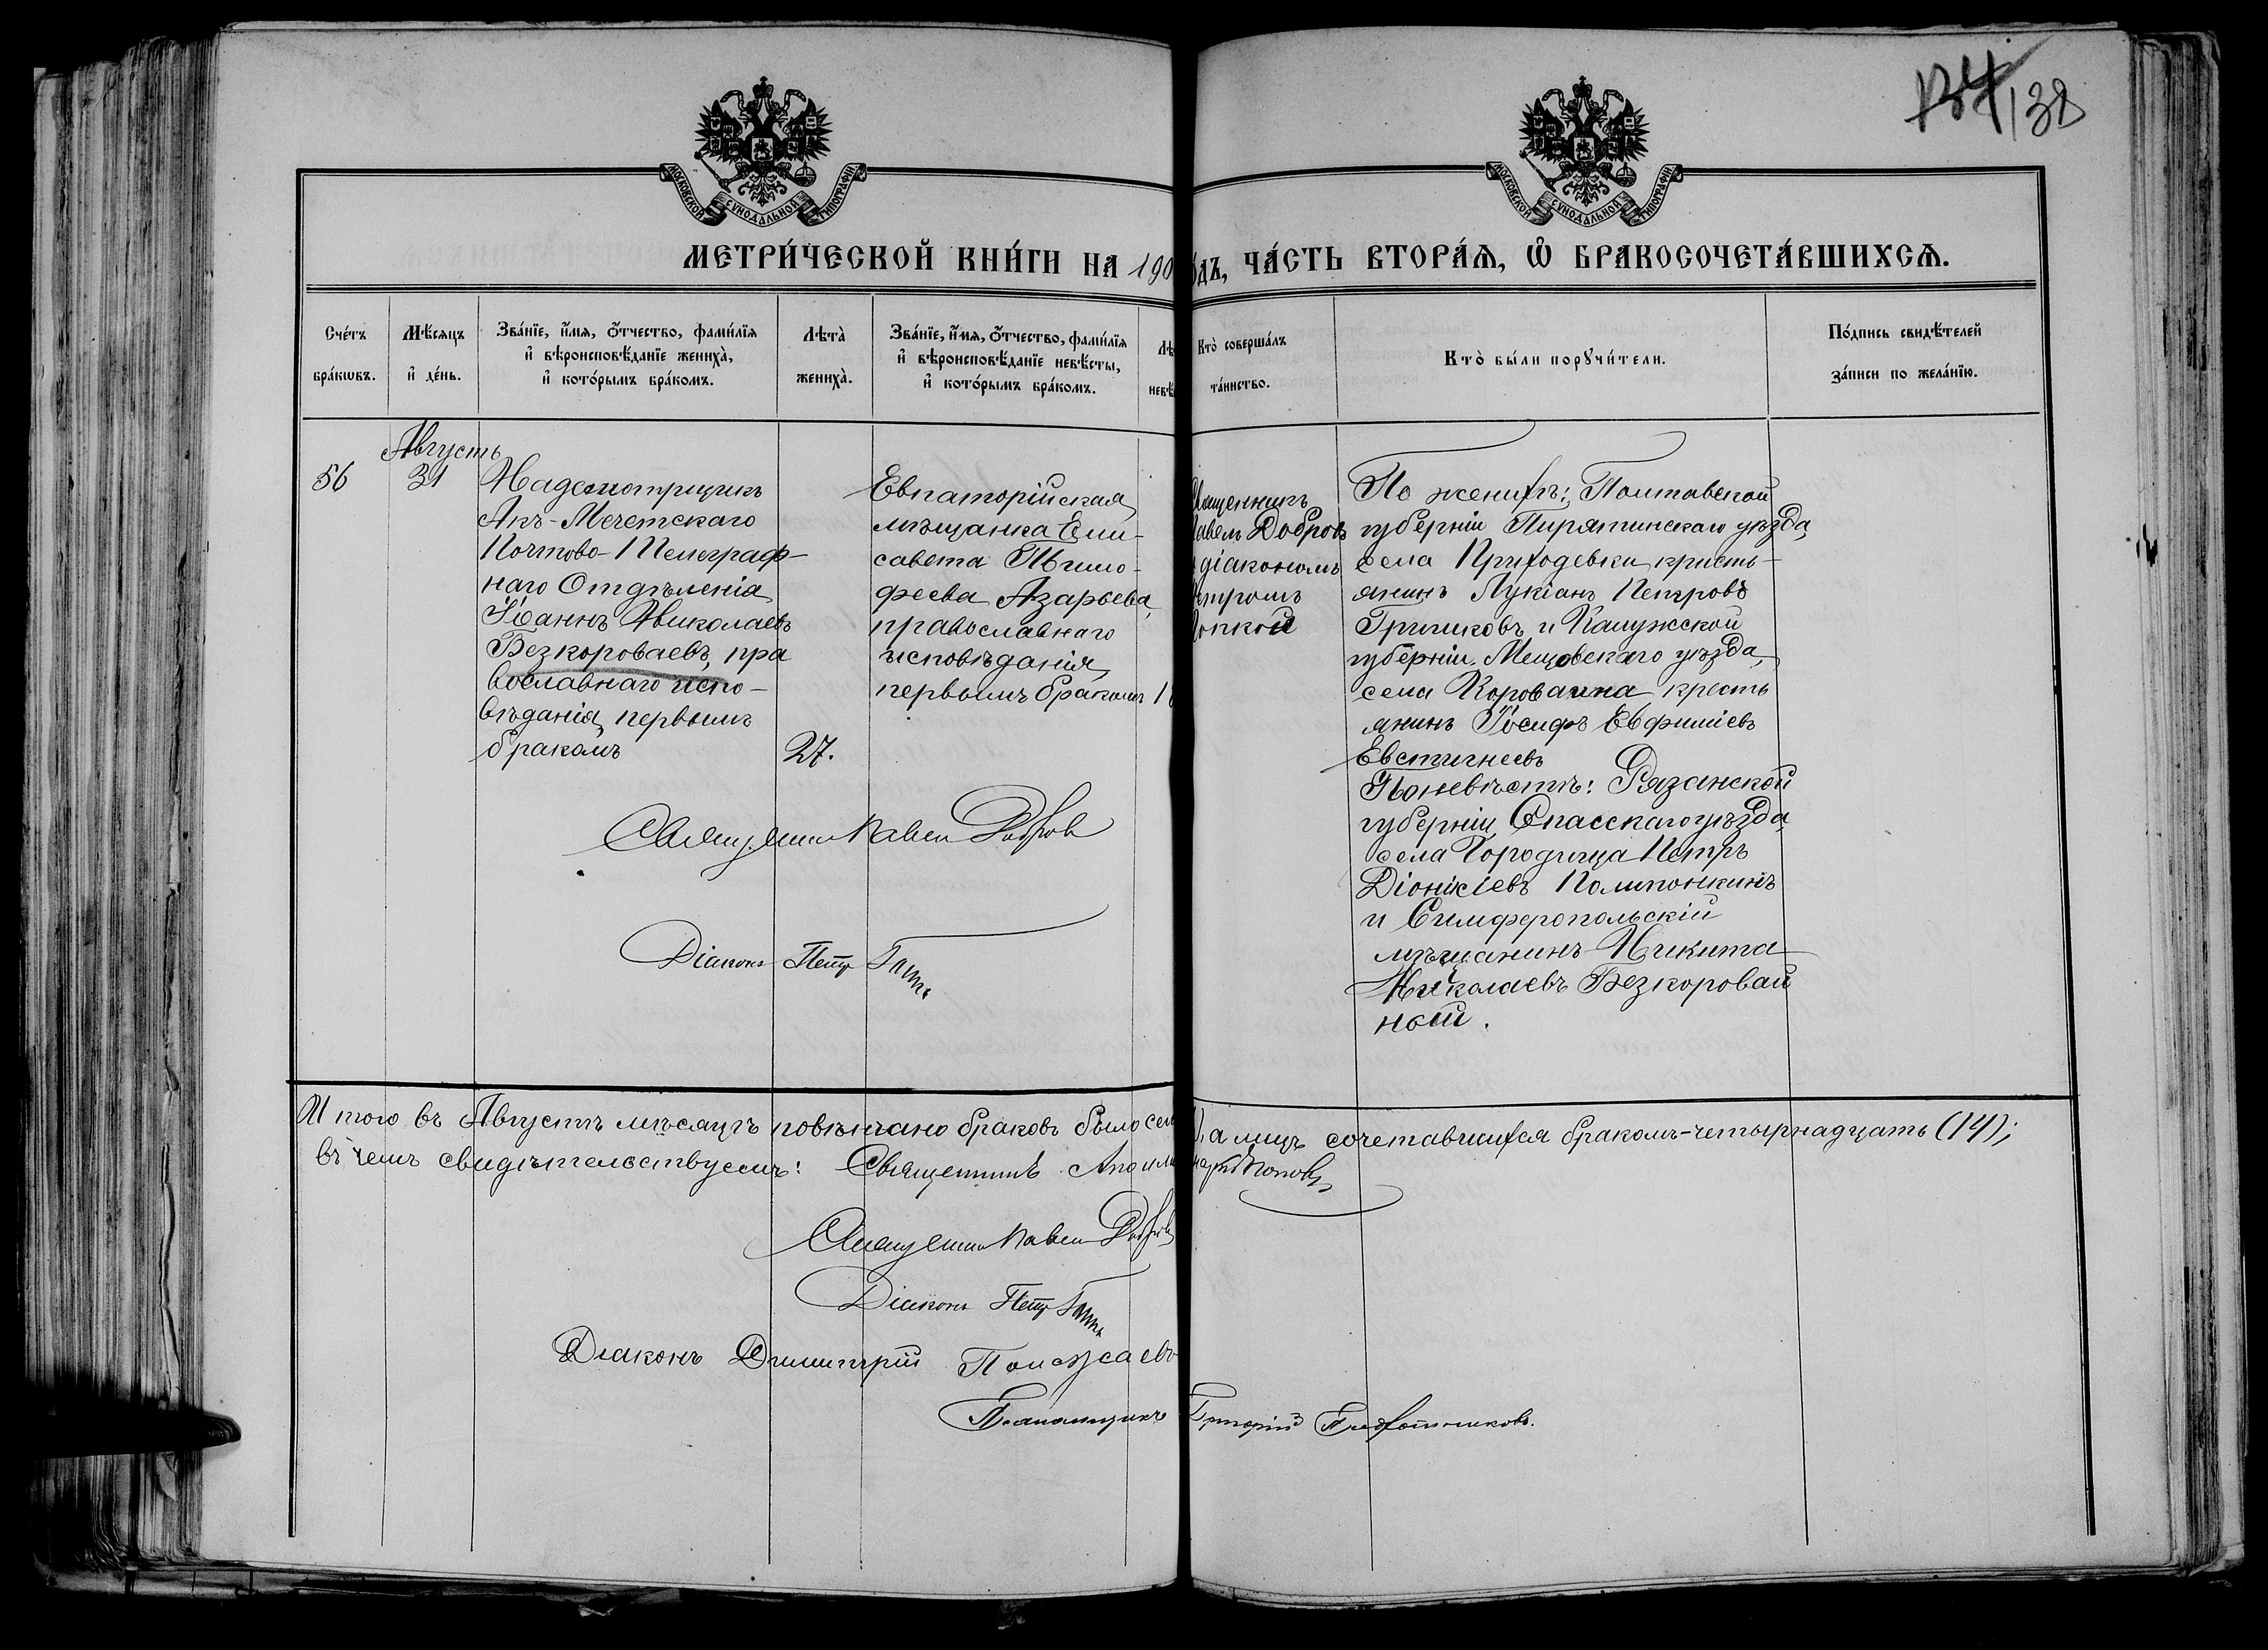 134 138
МОСКОВСКОЙ СѴНОДАЛЬНОЙ ТИПОГРАФІИ
МОСКОВСКОЙ СѴНОДАЛЬНОЙ ТИПОГРАФІИ
МЕТРИ́ЧЕСКОЙ КНИ́ГИ НА 190
ДЪ, ЧА́СТЬ ВТОРА́Я, Ѽ БРАКОСОЧЕТА́ВШИХСЯ.
Сче́тъ
бра́кѡвъ.
Мѣ́сяцъ
и҆ де́нь.
Зва́нїе, и҆́мя, ѻ҆́тчество, фами́лїя
и҆ вѣроисповѣ́данїе жениха̀,
и҆ кото́рымъ бра́комъ.
Лѣта̀
жениха̀.
Зва́нїе, и҆́мя, ѻ҆́тчество, фами́лїя
и҆ вѣроисповѣ́данїе невѣ́сты,
и҆ кото́рымъ бра́комъ.
Лѣ
невѣ
Кто̀ соверша́лъ
та́инство.
Кто̀ бы́ли порꙋчи́тели.
По́дпись свидѣ́телей
за́писи по жела́нїю.
Августъ
56
31
Надсмотрщикъ
Акъ-Мечетскаго
Почтово-Телеграф-
наго Отдѣленія
Іоаннъ Николаевъ
Безкороваевъ, пра
вославнаго испо-
вѣданія, первымъ
бракомъ
27.
Евпаторійская
мѣщанка Ели-
савета Тимо-
феева Азарьева,
православнаго
исповѣданія,
первымъ бракомъ
1
Священникъ
Павелъ Добровъ
діакономъ
Петромъ
По женихѣ: Полтавской
губерніи Пирятинскаго уѣзда,
села Приходевки кресть-
янинъ Лукіанъ Петровъ
Гришковъ и Калужской
губерніи, Мещовскаго уѣзда,
села Короваина кресть
янинъ Іосифъ Евфиміевъ
Евстигнеевъ
По невѣстѣ: Рязанской
губерніи Спасскаго уѣзда,
села Городища Петръ
Діонисіевъ Полипонкинъ
и Симферопольскій
мѣщанинъ Никита
Николаевъ Безкоровай
ный.
Священникъ Павелъ Добровъ
Діаконъ Петръ
Итого въ Августѣ мѣсяцѣ повѣнчано браковъ было сем
а лицъ сочетавшихся бракомъ-четырнадцать (14);
въ чемъ свидѣтельствуемъ: Священникъ Аполли
нарій Поповъ
Священникъ Павелъ Добровъ
Діаконъ Петръ
Діаконъ Димитрій
Псаломщикъ Григорій